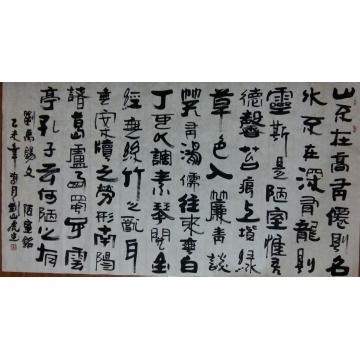 山不在高有僊則名
水不在深有龍則
靈斯是陋室惟吾
德馨苔痕上堦綠
草色入簾青談
笑有鴻儒往來無白
丁可以調素琴閱金
經無絲竹之亂耳
無案牘之勞形南陽
諸葛廬西蜀子雲
亭孔子云何陋之有
劉禹錫文 陋室銘
乙未年 月劉山